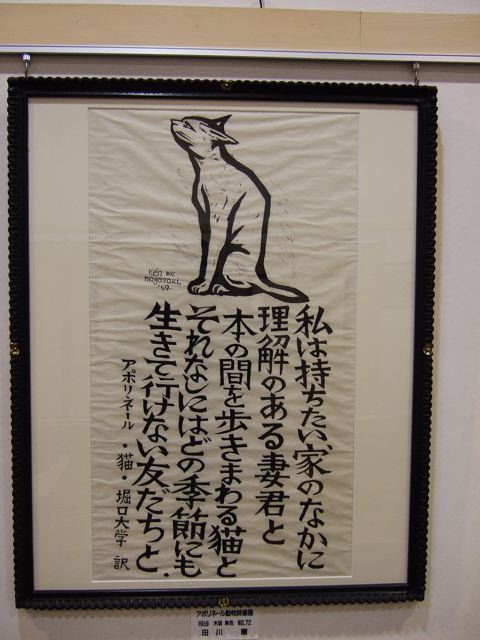 Ken
nagasaki.
'59.
私は持ちたい家のなかに
理解のある妻君と
本の間を歩きまわる猫と
それなしにはどの季節にも
生きて行けない友だちと.
アポリネール・猫・堀口大学 訳
アポリネール動物詩集園
1959 木版 単色 NO.72
田川 憲